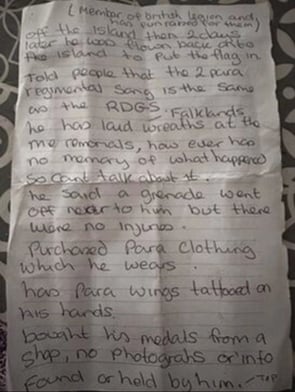 (Member of British legion and
has fun raised for them)
off the Island then 2 days
later he was flown back onto
the island to put the flag in
Told people that the 2 para
regimental Song is the same
as the RDGS. Falklands,
he has laid wreaths at the
me memorials, how ever has
no memory of what happened
So cant talk about it.
he said a grenade went
off near to him but there
were no injuries.
Purchased Para Clothing
which he wears.
has Para wings tattooed on
his hands.
bought his medals from a
Shop, no photografs or info
Found or held by him.